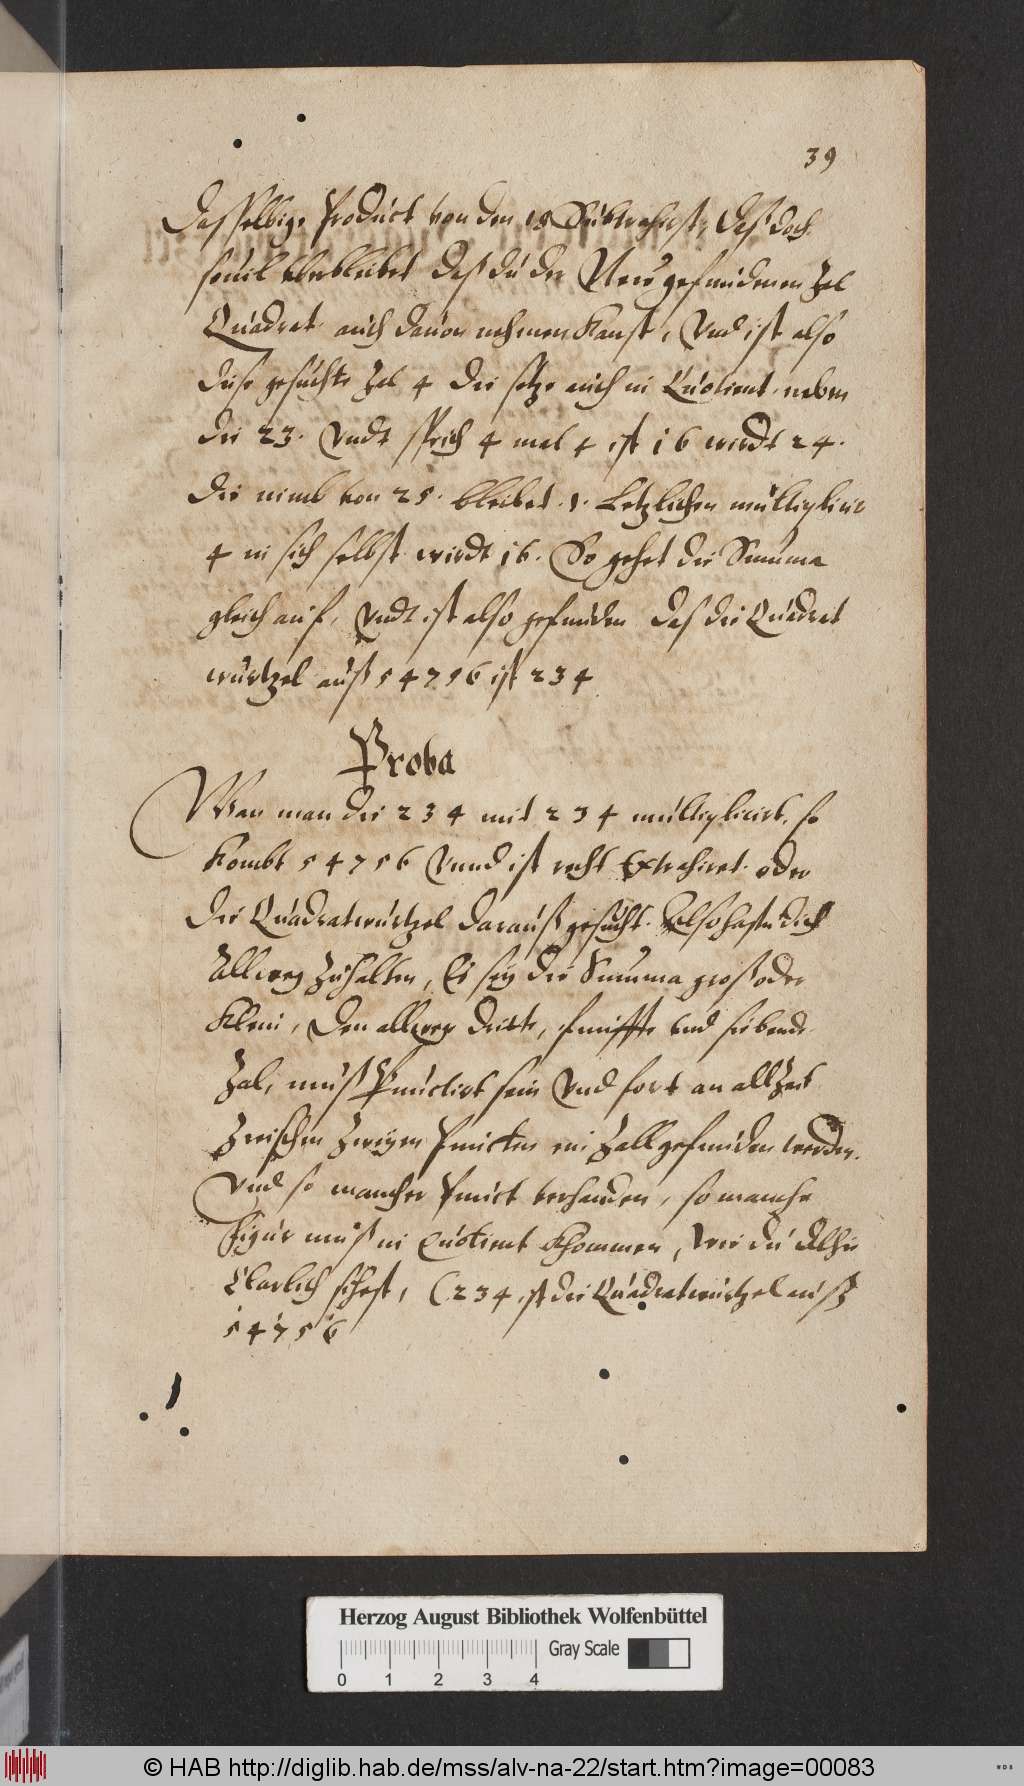 39
Dasselbige Product von den 18 Subtrahirst, daß doch
souil uberbleibet daß du der New gefundenen Zal
Quadrat auch dauon nehmen kanst, Vnd ist also
diese gesuchte Zal 4 die setze auch in Quotient neben
die 23. Vndt sprich 4 mal 4 ist 16 wirdt 24.
die nimb von 25. bleibet .1. Letzlichen multiplicir
4 in sich selbst wirdt 16. So gehet die Summa
gleich auf, Vndt ist also gefunden daß die Quadrat
wurtzel auß 54756 ist 234
Proba
Wan man die 234 mit 234 multiplicirt, so
kombt 54756 Vnnd ist recht Extrahiret oder
die Quadratwurtzel darauß gesucht. Also hastu dich
Allweg Zuhalten, Es sey die Summa groß oder
klein, Den allweg dritte, funffte vnd siebende
Zal, muß Punctirt sein Vnd fort an allzeit
Zwischen Zweyen Puncten ein Zall gefunden werden.
Vnd so mancher Punct verhanden, so manche
Figur muß in Quotient khommen, wie du Alhie
Clarlich sihest, (234 ist die Quadratwurtzel auß
54756
Herzog August Bibliothek Wolfenbüttel
Gray Scale
0 1 2 3 4
© HAB http://diglib.hab.de/mss/alv-na-22/start.htm?image=00083